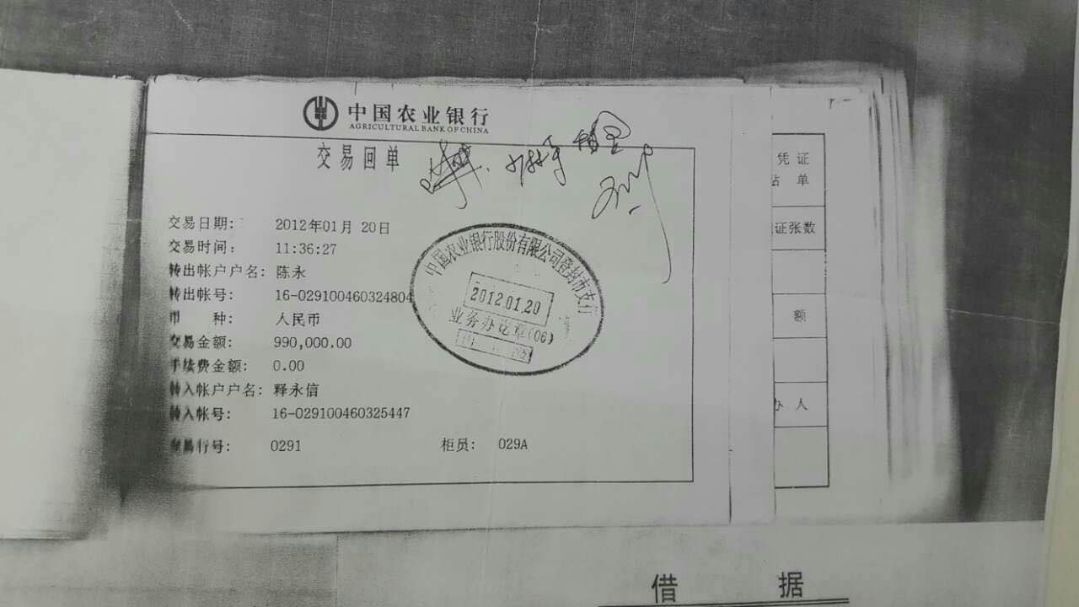 中国农业银行
AGRICULTURAL BANK OF CHINA
交易回单
交易日期: 2012年01月 20日
交易时间: 11:36:27
转出帐户户名: 陈永
转出帐号: 16-029100460324804
币 种: 人民币
交易金额: 990,000.00
手续费金额: 0.00
转入帐户户名: 释永信
转入帐号: 16-029100460325447
交易行号: 0291 柜员: 029A
中国农业银行股份有限公司登封市支行
2012.01.20
业务办讫章(06)
凭证
单
证张数
额
办人
借 据